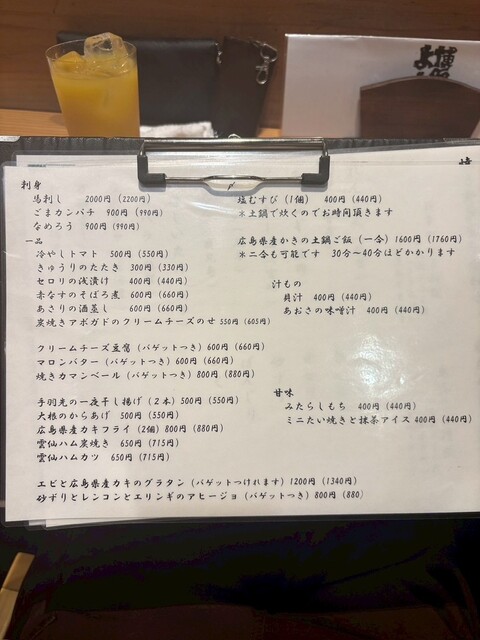 刺身
馬刺し 2000円 (2200円)
ごまカンパチ 900円 (990円)
なめろう 900円 (990円)
一品
冷やしトマト 500円 (550円)
きゅうりのたたき 300円 (330円)
セロリの浅漬け 400円 (440円)
赤なすのそぼろ煮 600円 (660円)
あさりの酒蒸し 600円 (660円)
炭焼きアボガドのクリームチーズのせ 550円 (605円)
クリームチーズ豆腐 (バゲットつき) 600円 (660円)
マロンバター (バゲットつき) 600円 (660円)
焼きカマンベール (バゲットつき) 800円 (880円)
手羽先の一夜干し揚げ (2本) 500円 (550円)
大根のからあげ 500円 (550円)
広島県産カキフライ (2個) 800円 (880円)
雲仙ハム炭焼き 650円 (715円)
雲仙ハムカツ 650円 (715円)
エビと広島県産カキのグラタン (バゲットつけれます) 1200円 (1340円)
砂ずりとレンコンとエリンギのアヒージョ (バゲットつき) 800円 (880)
塩むすび (1個) 400円 (440円)
*土鍋で炊くのでお時間頂きます
広島県産かきの土鍋ご飯 (一合) 1600円 (1760円)
*二合も可能です 30分～40分ほどかかります
汁もの
貝汁 400円 (440円)
あおさの味噌汁 400円 (440円)
甘味
みたらしもち 400円 (440円)
ミニたい焼きと抹茶アイス 400円 (440円)